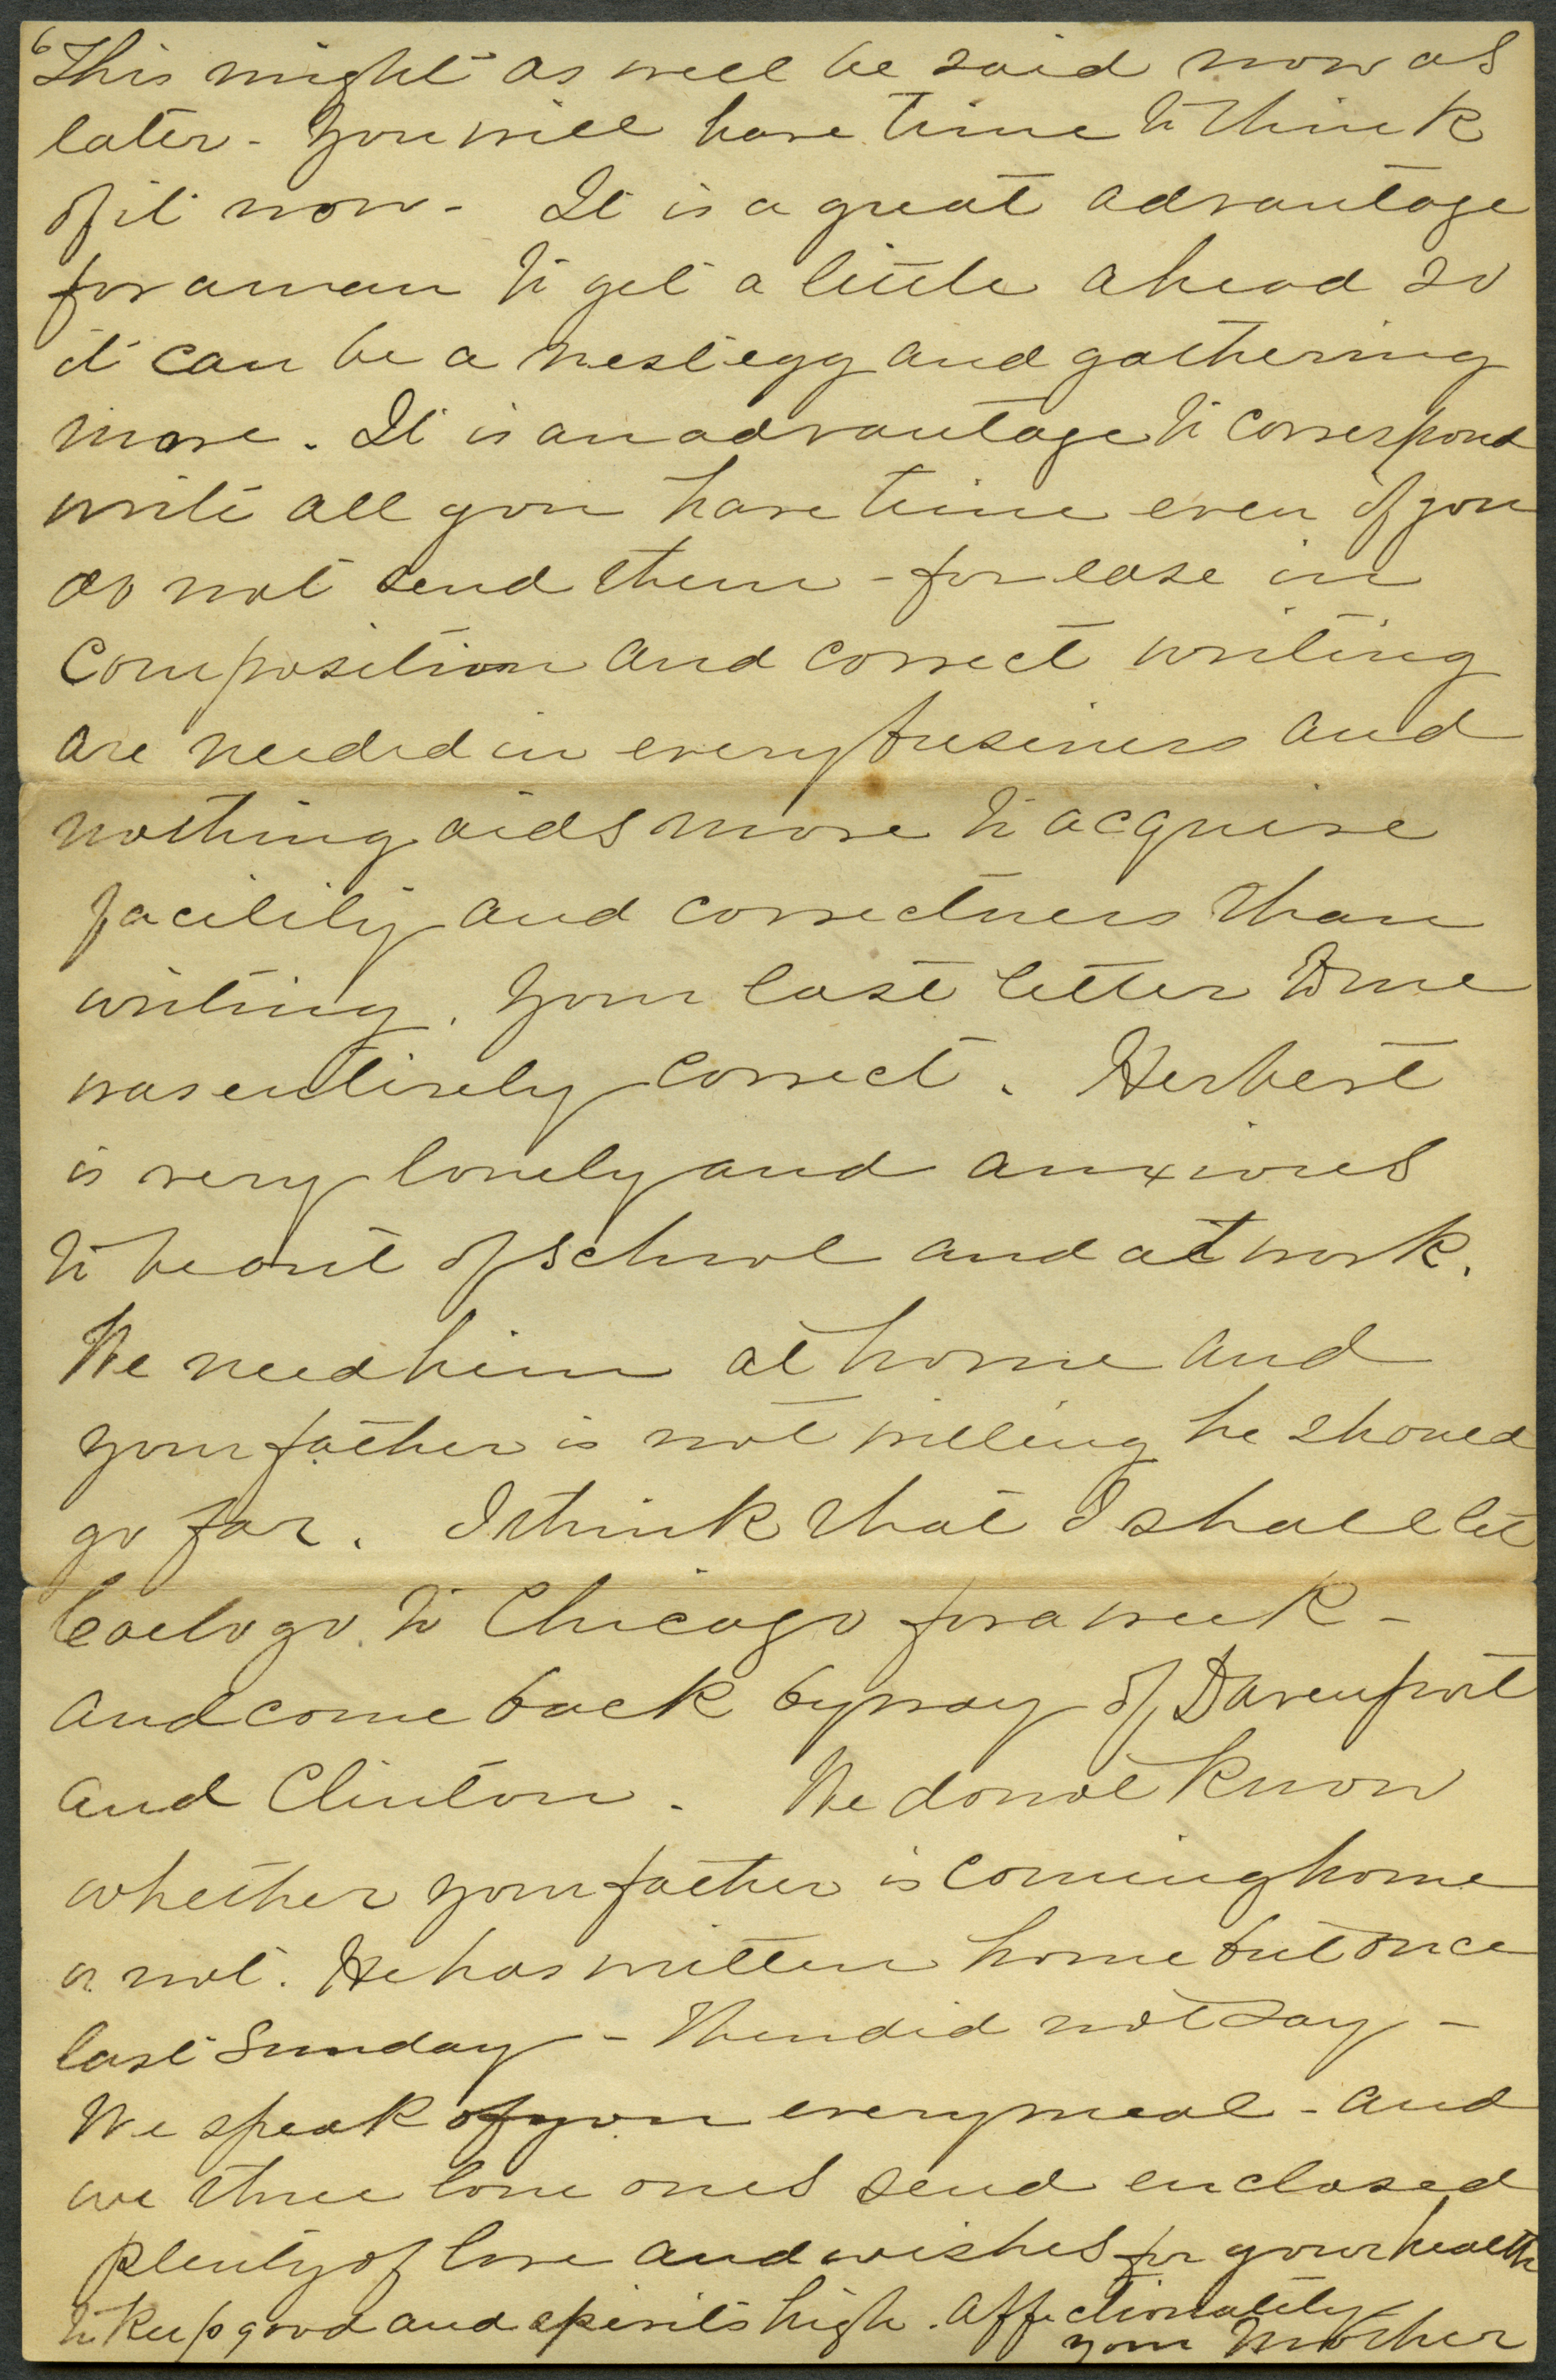 6
This might as well be said now as
later - You will have time to think
of it now - It is a great advantage
for a man to get a little ahead so
it can be a nest egg and gathering
more. It is an advantage to correspond
write all you have time even if you
do not send them - for ease in
composition and correct writing
are needed in every business and
nothing aids more to acquire
facility and correctness than
writing. Your last letter to me
was entirely correct. Herbert
is very lonely and anxious
to be out of school and at work.
We need him at home and
your father is not willing he should
go far. I think that I shall let
go to Chicago for a week -
and come back by way of Davenport
and Clinton. We do not know
whether your father is coming home
or not. He has written home but once
last Sunday - Then did not say -
We speak of you every meal - and
we three lone ones send enclosed
plenty of love and wishes for your health
to keep good and spirits high. Affectionately
your Mother